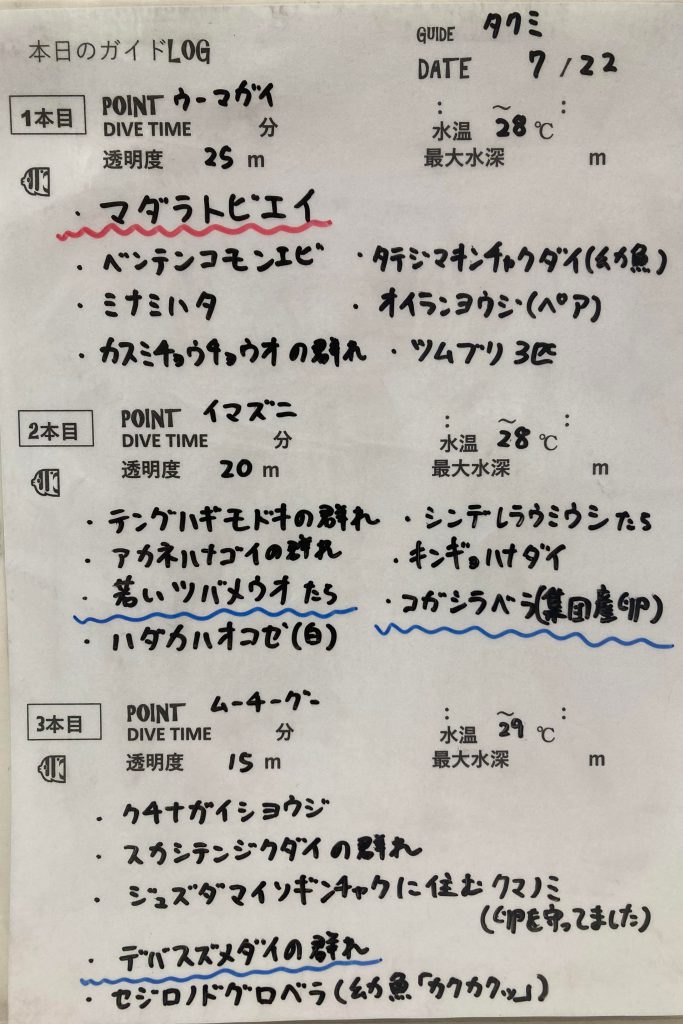 本日のガイドLOG
GUIDE タクミ
DATE 7/22
1本目 POINT ウーマガイ
DIVE TIME 分 : ～ :
透明度 25 m 水温 28℃
最大水深 m
・マダラトビエイ
・ベンテンコモンエビ ・タテジマキンチャクダイ(幼魚)
・ミナミハタ ・オイランヨウジ(ペア)
・カスミチョウチョウオの群れ ・ツムブリ3匹
2本目 POINT イマズニ
DIVE TIME 分 : ～ :
透明度 20 m 水温 28℃
最大水深 m
・テングハギモドキの群れ ・シンデレラウミウシたち
・アカネハナゴイの群れ ・キンギョハナダイ
・若いツバメウオたち ・コガシラベラ(集団産卵)
・ハダカハオコゼ(白)
3本目 POINT ムーチーグー
DIVE TIME 分 : ～ :
透明度 15 m 水温 29℃
最大水深 m
・クチナガイショウジ
・スカシテンジクダイの群れ
・ジュズダマイソギンチャクに住むクマノミ
(卵を守ってました)
・デバスズメダイの群れ
・セジロノドグロベラ(幼魚「カクカクッ」)